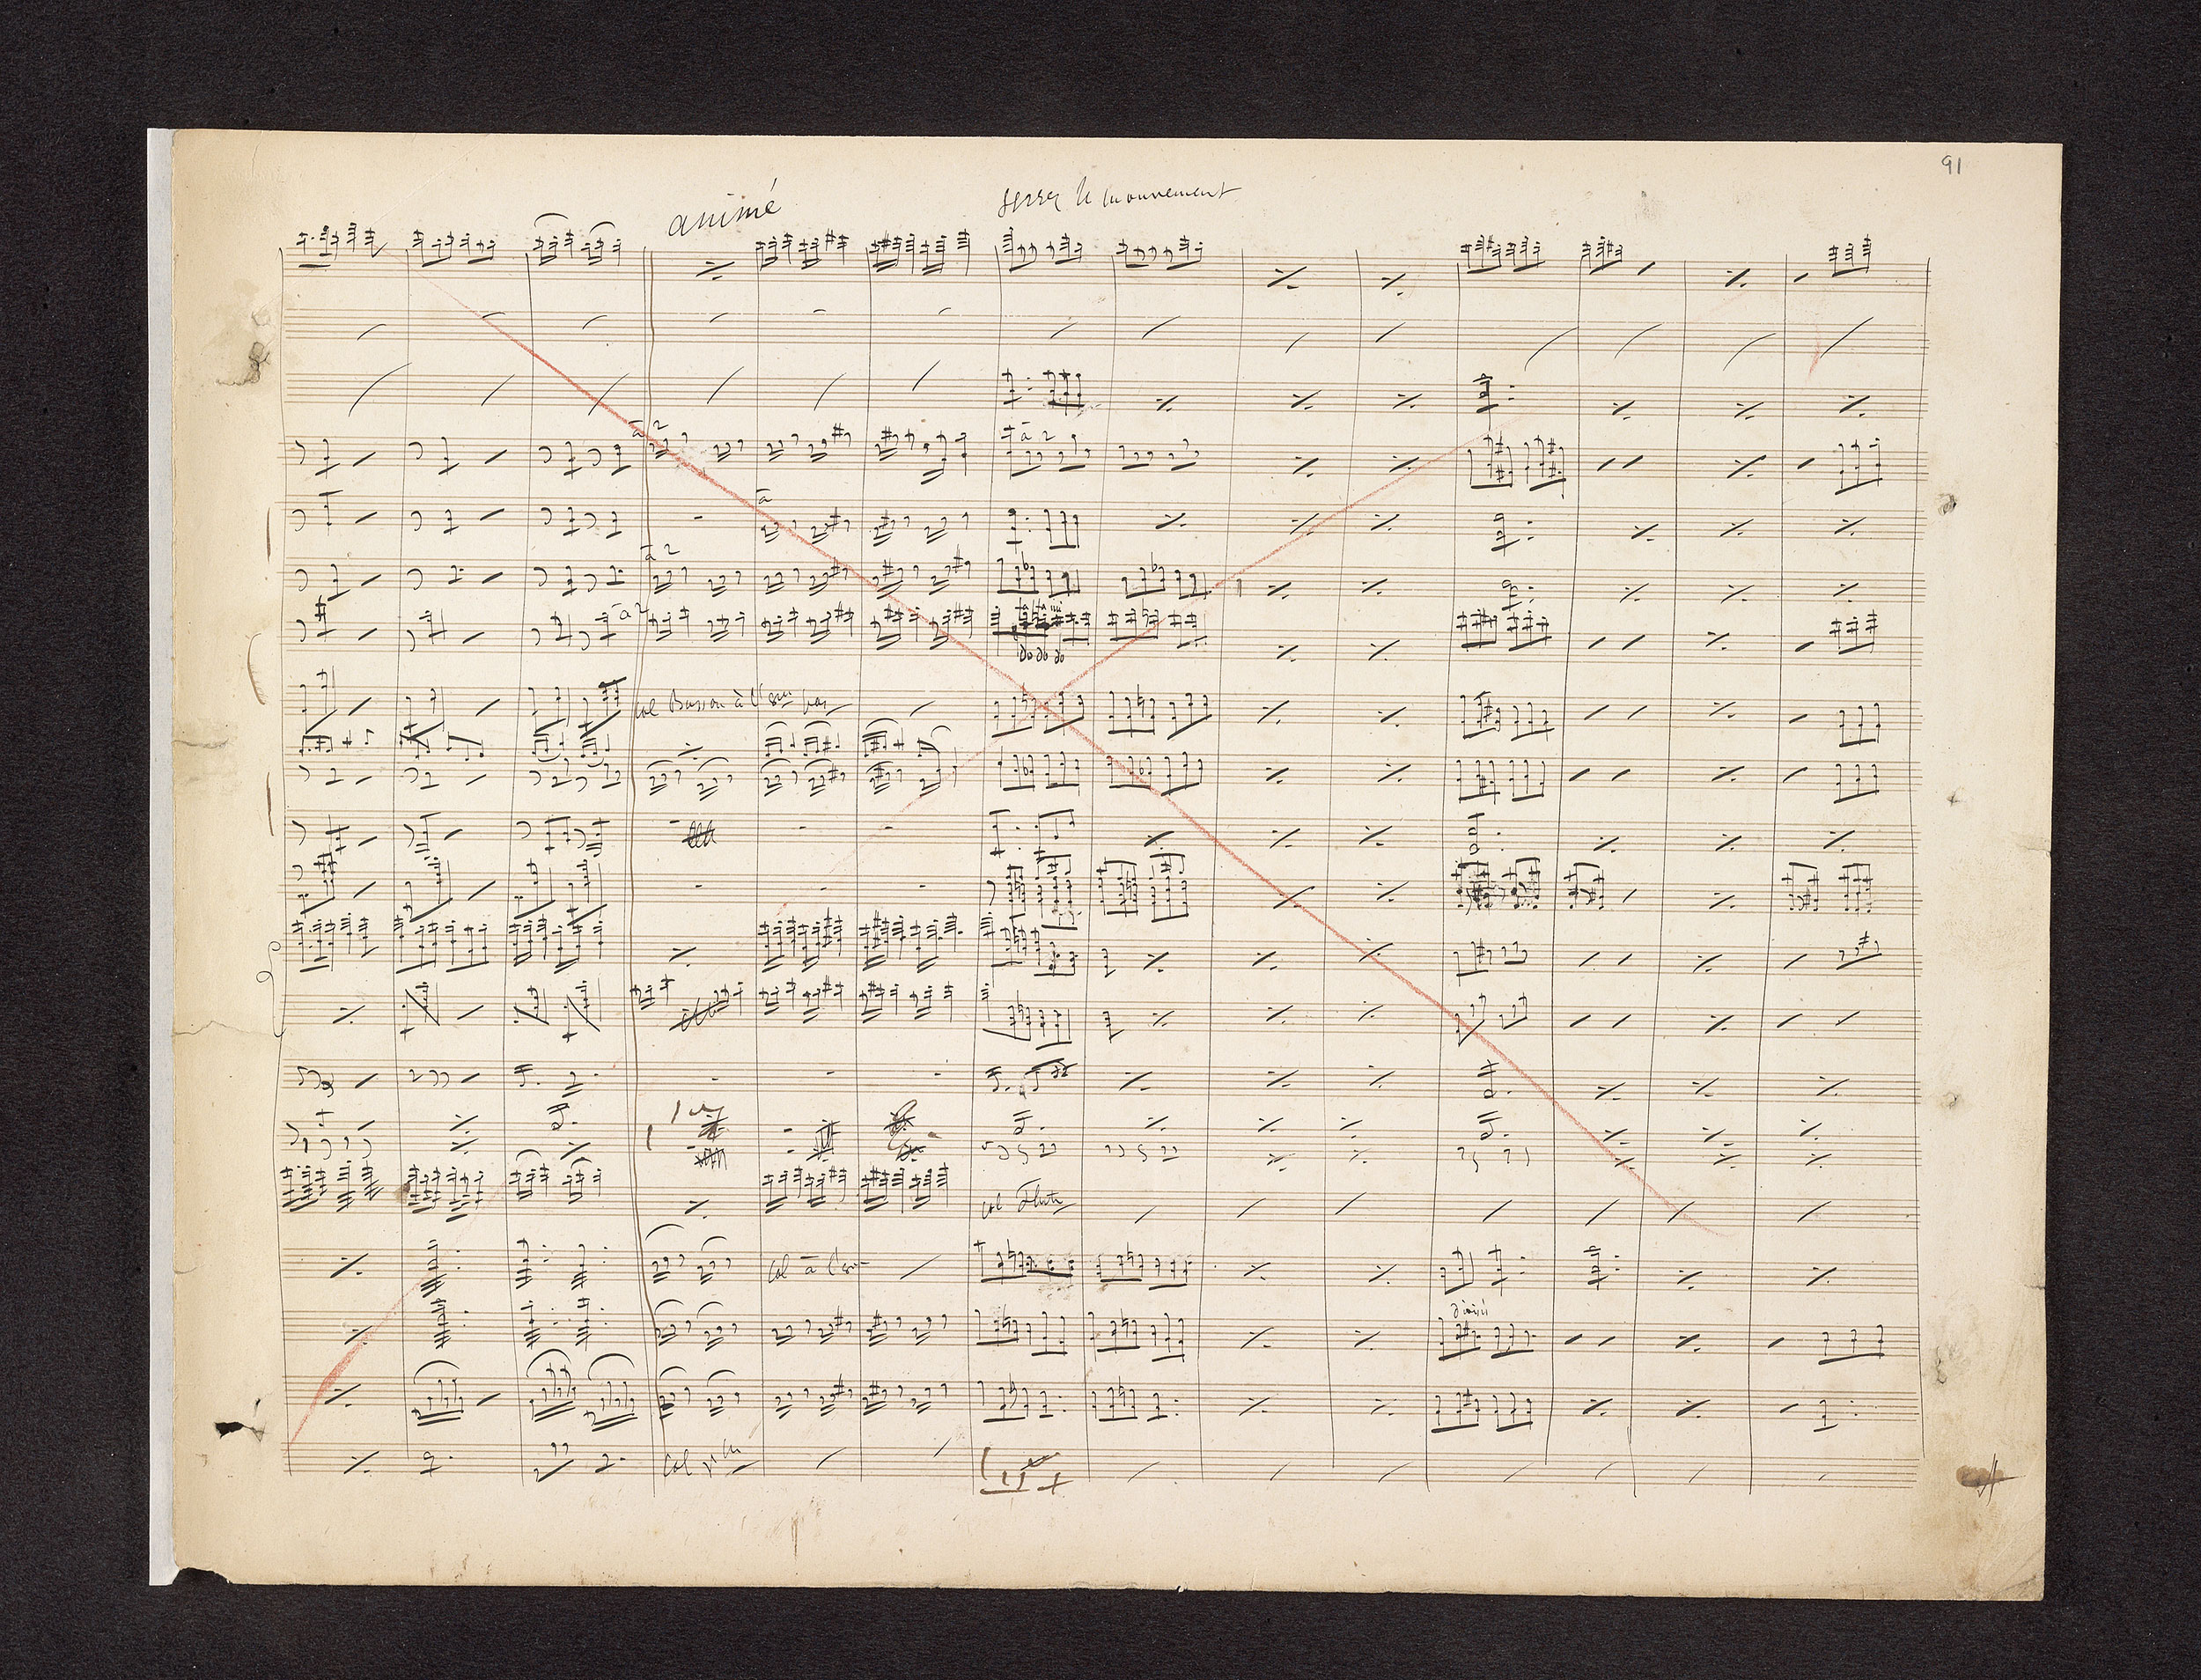 91
animé
serrez le mouvement
à 2
à 2
à
à 2
à 2
do do do
col Basson à l'8ve bas
col Flute
col à l'8ve
divisi
col